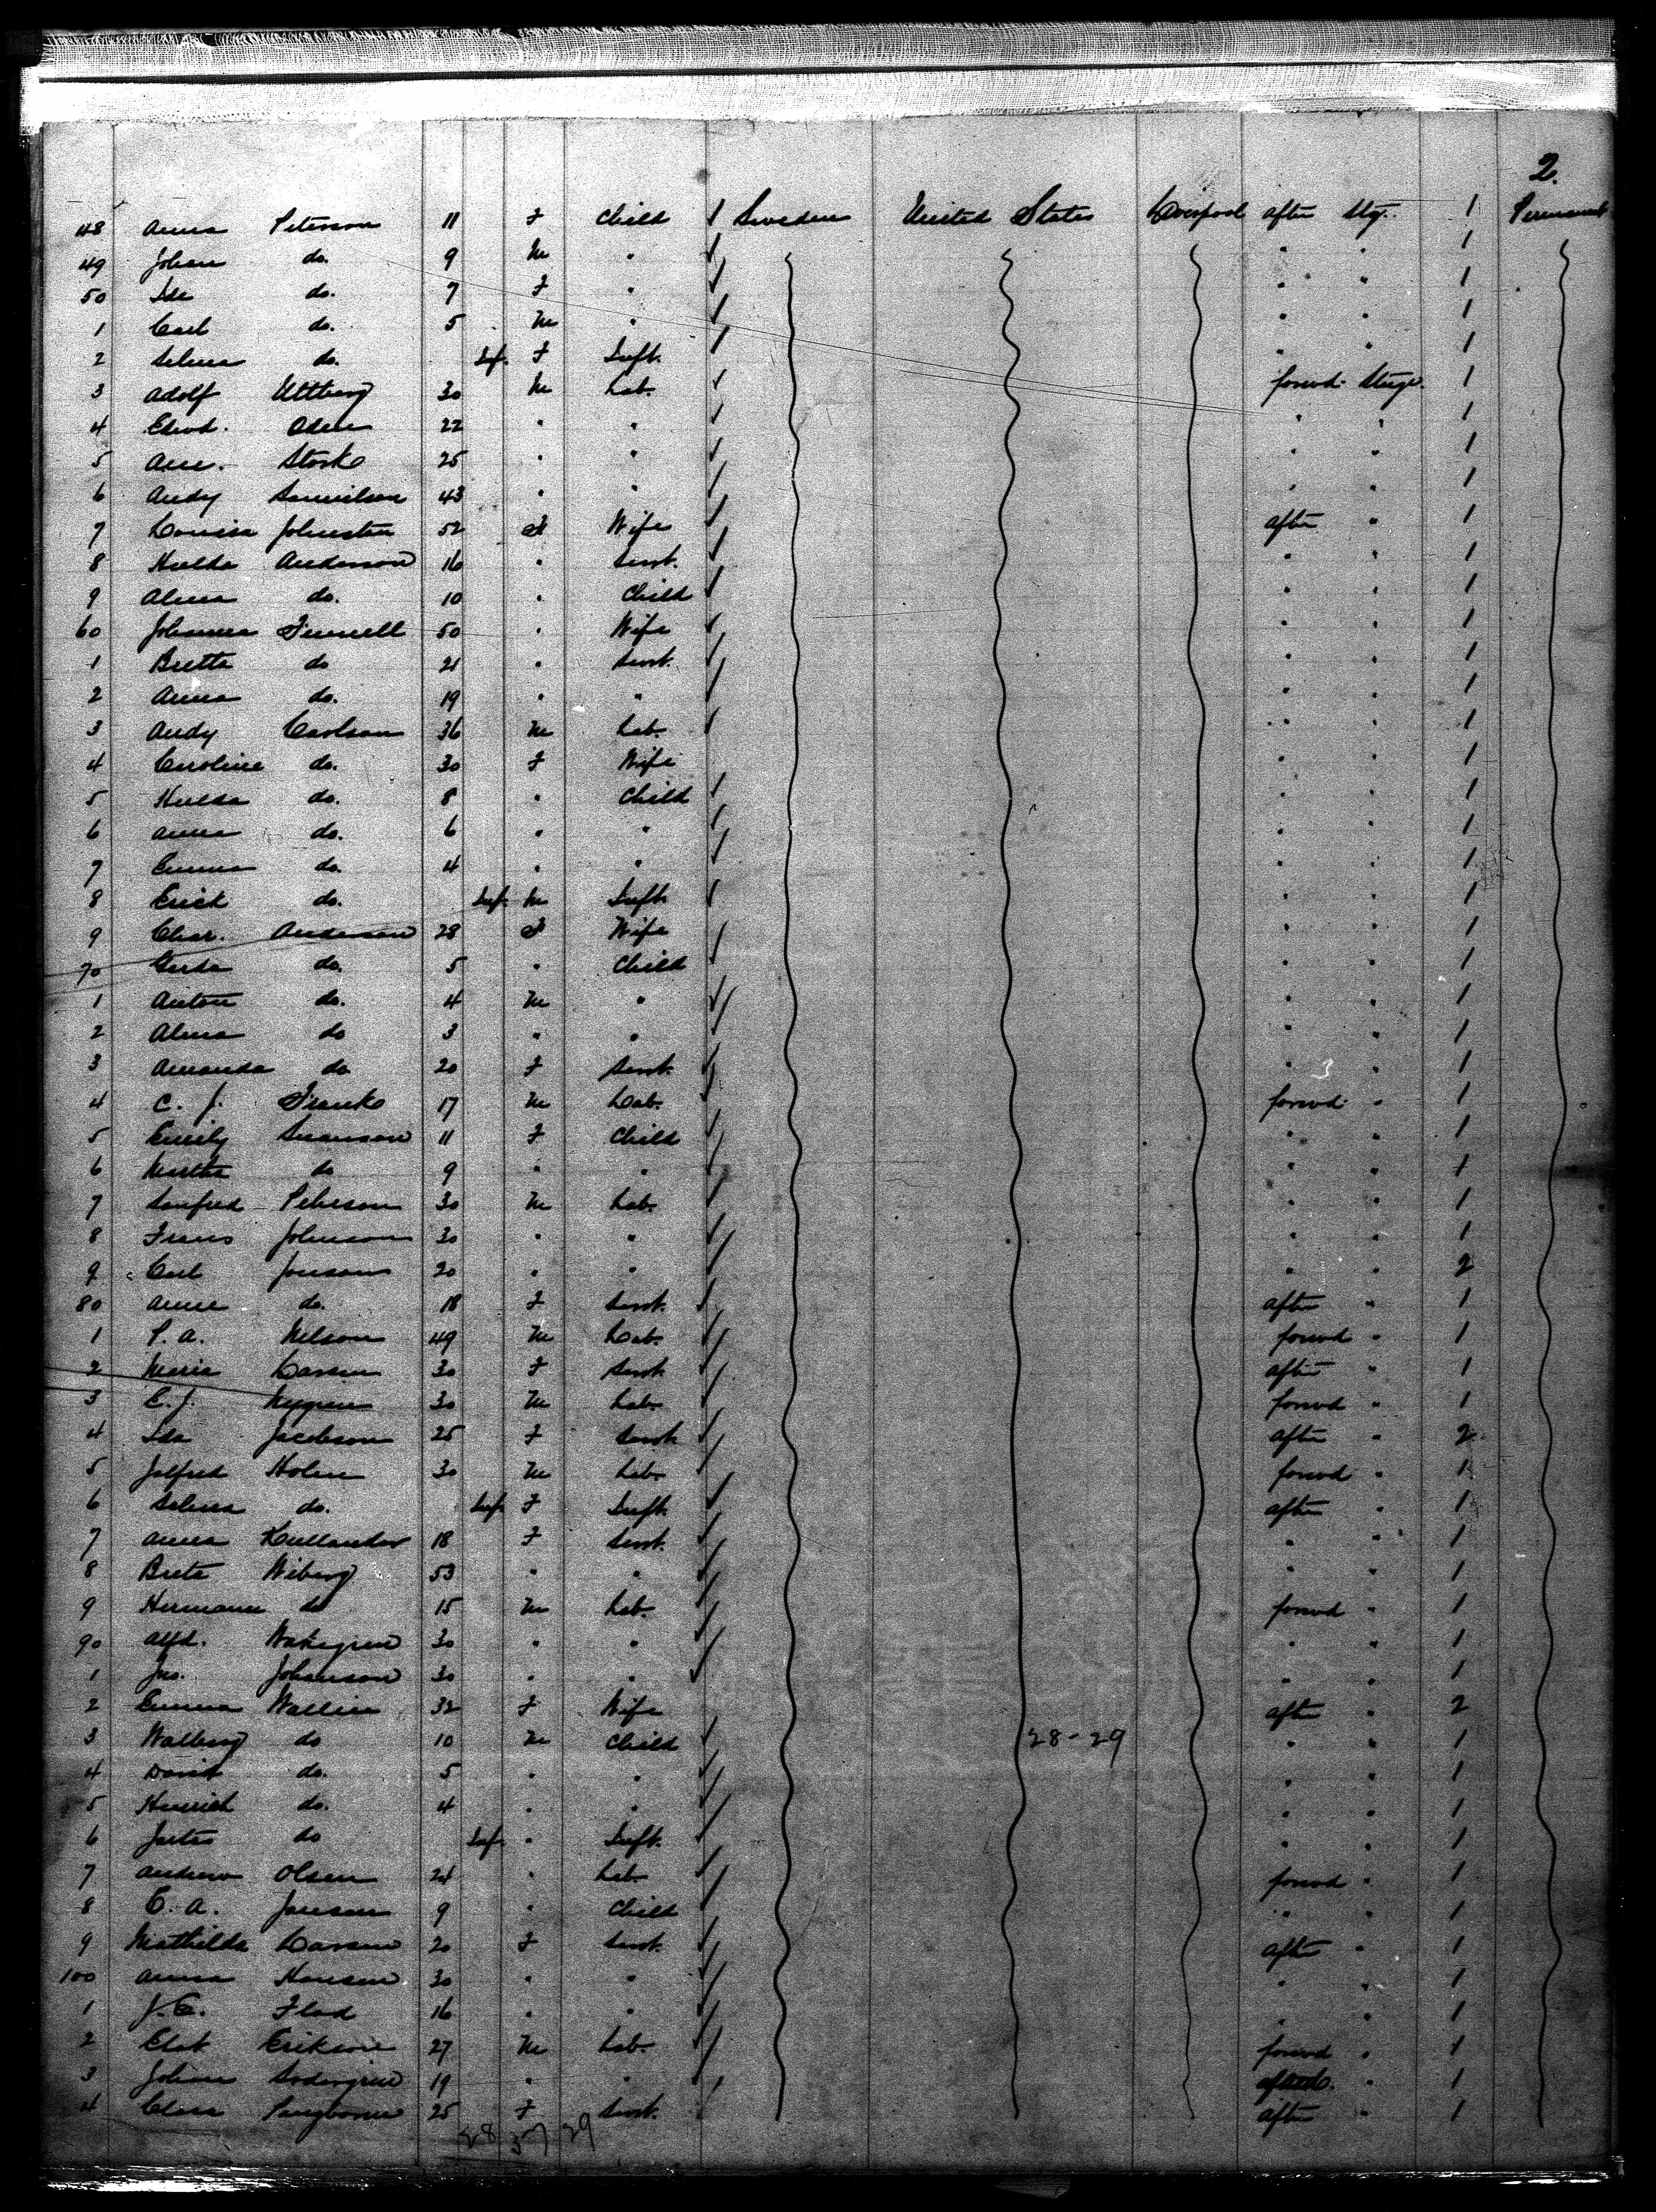 2.
48 Anna Peterson 11 F Child Sweden United States Liverpool after Stg. 1 Permanent
49 Johan do. 9 M " " " 1
50 Ida do. 7 F " " " 1
1 Carl do. 5 M " " " 1
2 Selma do. Inf. F Inft. " " 1
3 Adolf 30 M Lab. forwd. Stege. 1
4 Edwd. 22 " " " " 1
5 Stork 25 " " " " 1
6 Andy Samuelson 43 " " " " 1
7 Louisa Johnston 52 F Wife after " 1
8 Hulda Anderson 16 " Servt. " " 1
9 Alma do. 10 " Child " " 1
60 Johanna 50 " Wife " " 1
1 Britta do 21 " Servt. " " 1
2 Anna do. 19 " " " " 1
3 Andy Carlson 36 M Lab. " " 1
4 Caroline do. 30 F Wife " " 1
5 Hulda do. 8 " Child " " 1
6 Anna do. 6 " " " " 1
7 Emma do. 4 " " " " 1
8 Erick do. Inf. M Inft. " " 1
9 Char. Anderson 28 F Wife " " 1
70 Gerda do. 5 " Child " " 1
1 Anton do. 4 M " " " 1
2 Alma do 3 " " " " 1
3 Amanda do. 20 F Servt. " " 1
4 C. J. Frank 17 M Lab. forwd. " 1
5 Emily Swanson 11 F Child " " 1
6 Martha do 9 " " " " 1
7 Sanfred Peterson 30 M Lab. " " 1
8 Frans Johnson 30 " " " " 1
9 Carl Jonson 20 " " " " 2
80 Anna do. 18 F Servt. after " 1
1 P. A. Nelson 49 M Lab. forwd " 1
2 Maria Larsen 30 F Servt. after " 1
3 E. J. Nygren 30 M Lab. forwd " 1
4 Ida Jacobson 25 F Servt. after " 2
5 Holm 30 M Lab. forwd " 1
6 Selma do. Inf. F Inft. after " 1
7 Anna 18 F Servt. " " 1
8 Brita Wiberg 53 " " " " 1
9 Hermann do 15 M Lab. forwd " 1
90 Alfd. 30 " " " " 1
1 Jno. Johanson 30 " " " " 1
2 Emma Wallin 32 F Wife after " 2
3 Walberg do 10 M Child 28-29 " " 1
4 David do. 5 " " " " 1
5 do. 4 " " " " 1
6 do Inf. " Inft. " " 1
7 Andrew Olsen 24 " Lab. forwd " 1
8 C. A. Jonson 9 " Child " " 1
9 Mathilda Larsen 20 F Servt. after " 1
100 Anna Hansen 30 " " " " 1
1 J. C. Flad 16 " " " " 1
2 27 M Lab. forwd " 1
3 Johan Sodergren 19 " " " 1
4 Clara 25 F Servt. after " 1
28 29